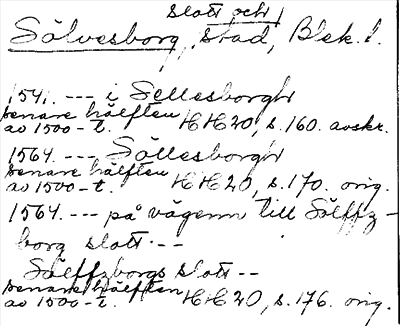 slott och
Sölvesborg, stad, Blek. l.
1541. --- i Sellesborgh
senare hälften
av 1500-t. HH 20, s. 160. avskr.
1564. --- Söllesborgh
senare hälften
av 1500-t. HH 20, s. 170. orig.
1564. --- på vägenn till Sölffz-
borg slott. --
Sölffzborgs slott --
senare hälften
av 1500-t. HH 20, s. 176. orig.